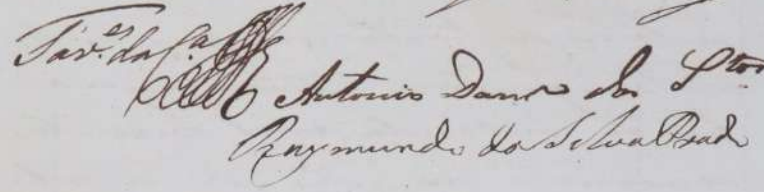 Tav.es da C.a
Antonio Dan dos S.tos
Raymundo da Silva Prado